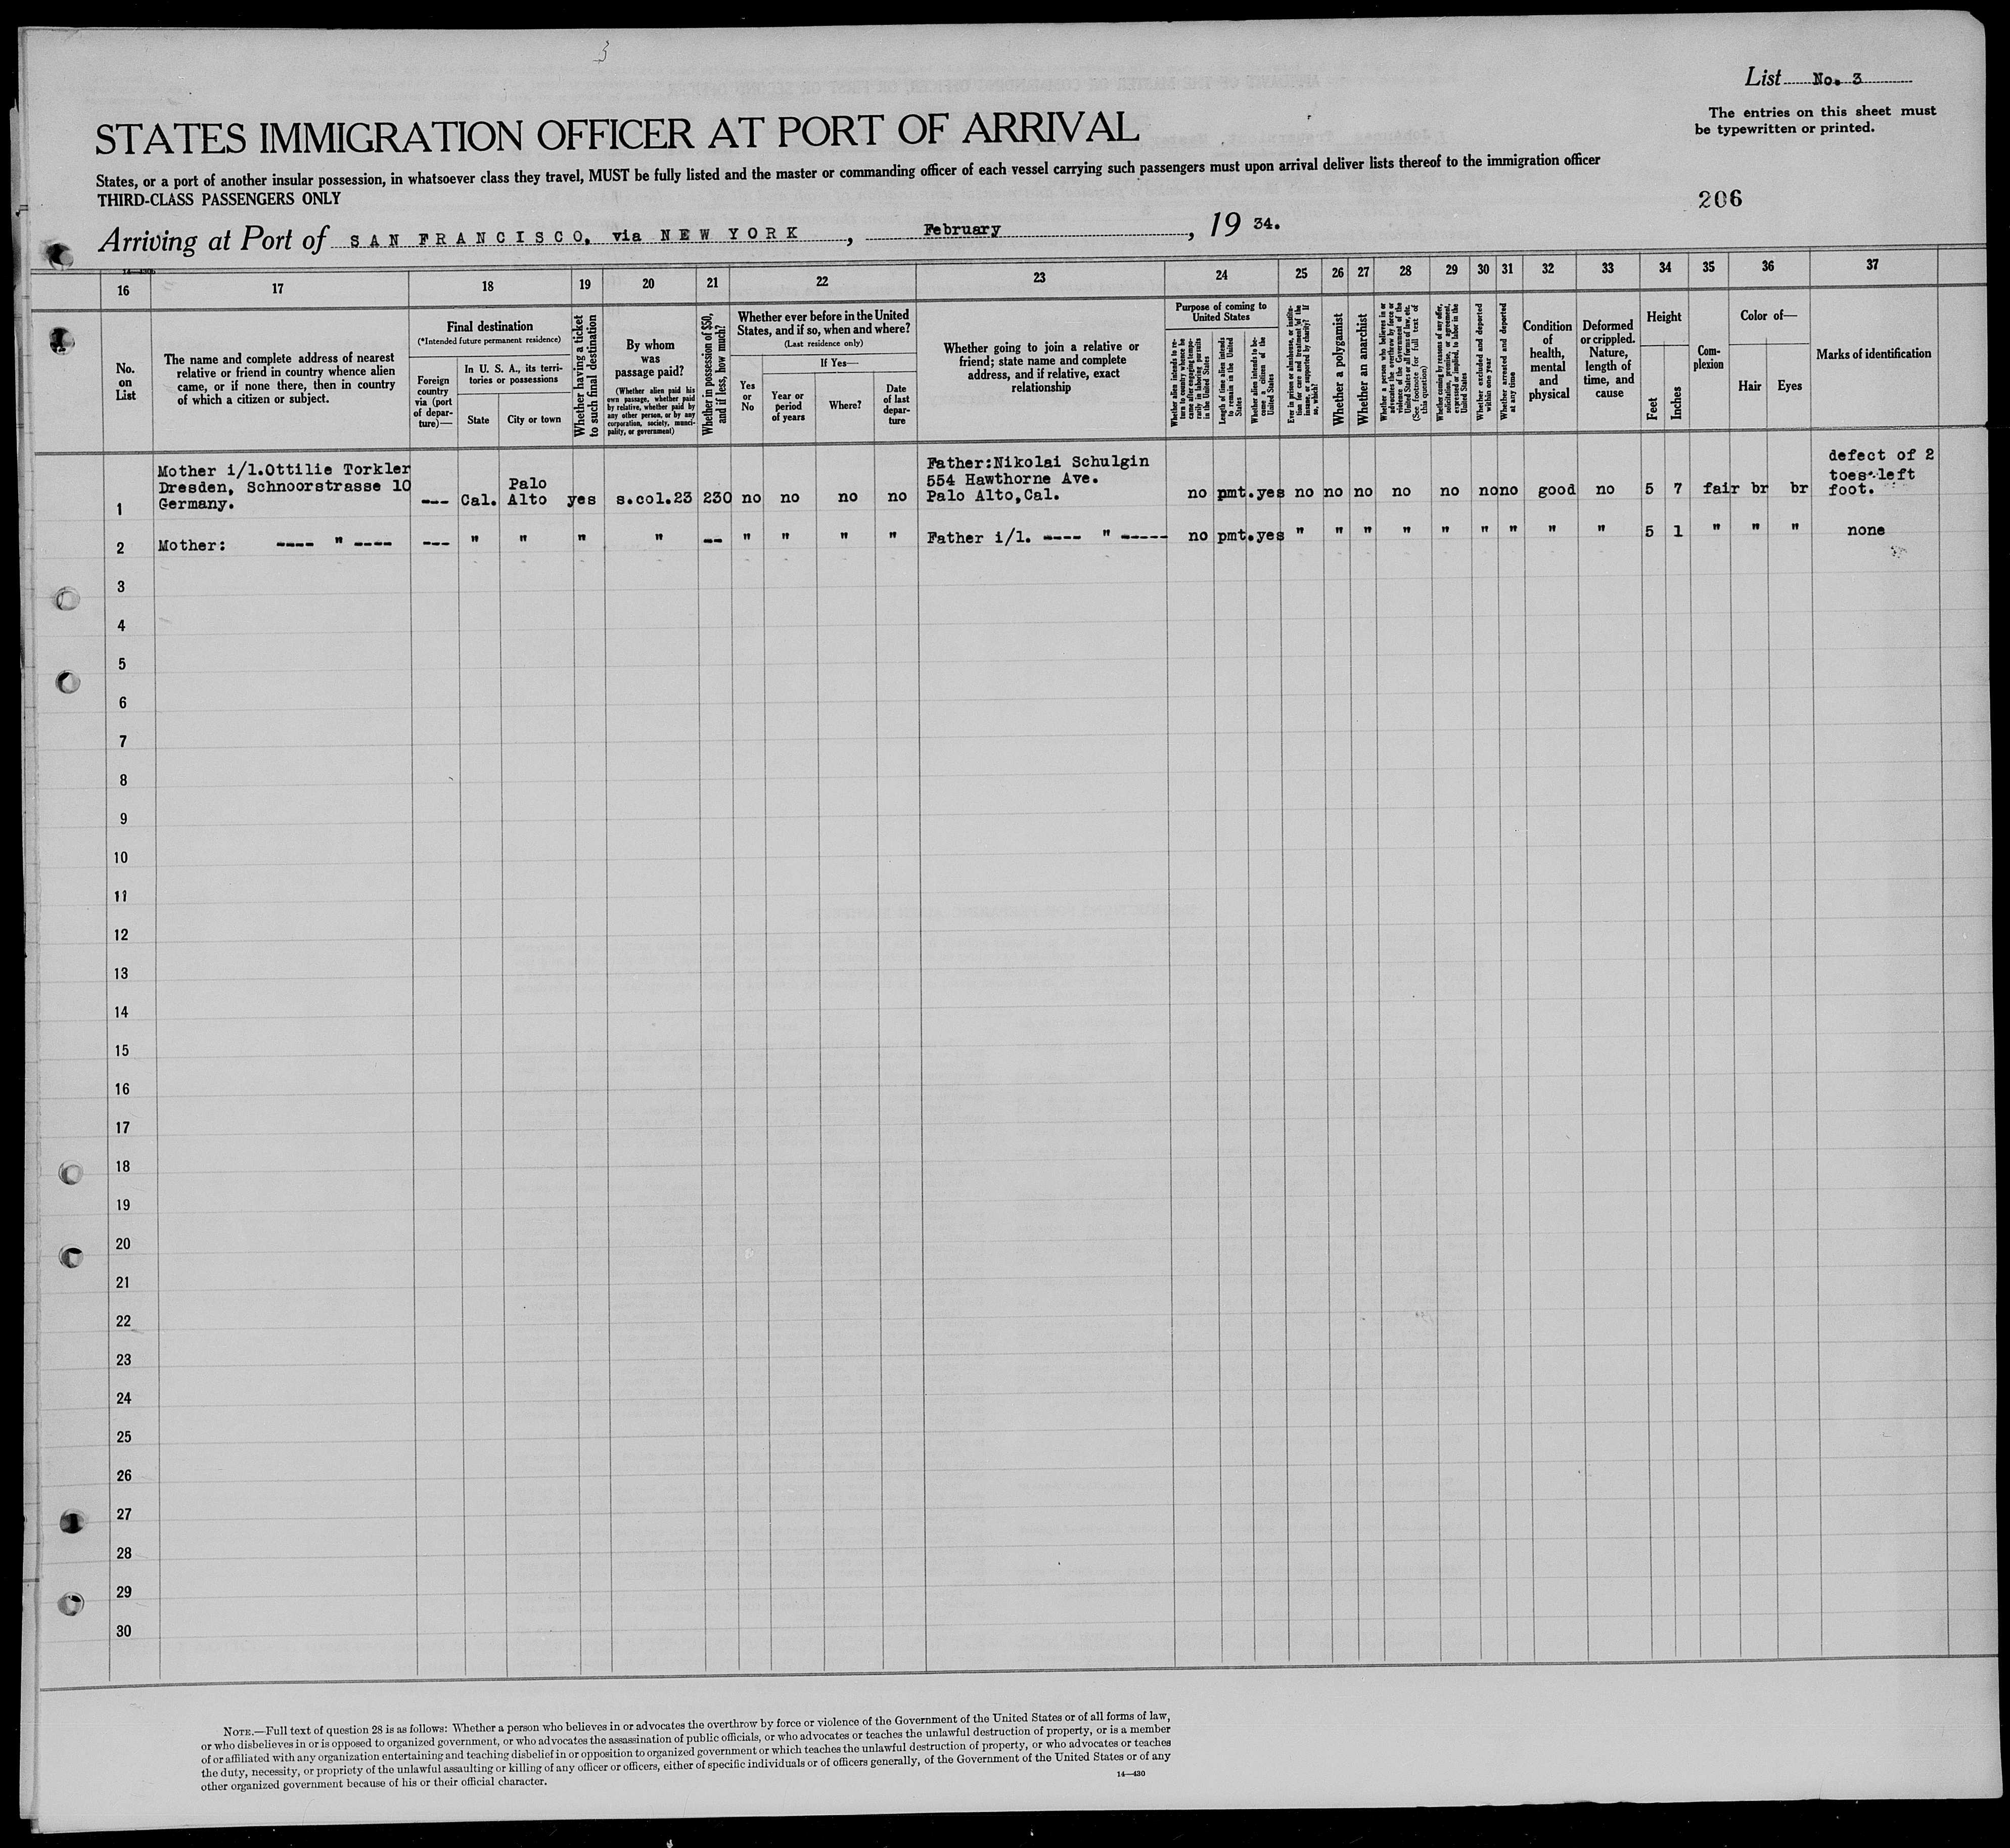 3
List No. 3
The entries on this sheet must
be typewritten or printed.
STATES IMMIGRATION OFFICER AT PORT OF ARRIVAL
States, or a port of another insular possession, in whatsoever class they travel, MUST be fully listed and the master or commanding officer of each vessel carrying such passengers must upon arrival deliver lists thereof to the immigration officer
THIRD-CLASS PASSENGERS ONLY
206
Arriving at Port of SAN FRANCISCO, via NEW YORK, February, 19 34.
14—430
16 17 18 19 20 21 22 23 24 25 26 27 28 29 30 31 32 33 34 35 36 37
No.
on
List
The name and complete address of nearest
relative or friend in country whence alien
came, or if none there, then in country
of which a citizen or subject.
Final destination
(*Intended future permanent residence)
Foreign
country
via (port
of depar-
ture)—
In U. S. A., its terri-
tories or possessions
State
City or town
Whether having a ticket
to such final destination
By whom
was
passage paid?
(Whether alien paid his
own passage, whether paid
by relative, whether paid by
any other person, or by any
corporation, society, munici-
pality, or government)
Whether in possession of $50,
and if less, how much?
Whether ever before in the United
States, and if so, when and where?
(Last residence only)
Yes
or
No
If Yes—
Year or
period
of years
Where?
Date
of last
depar-
ture
Whether going to join a relative or
friend; state name and complete
address, and if relative, exact
relationship
Purpose of coming to
United States
Whether alien intends to re-
turn to country whence he
came after engaging tempo-
rarily in laboring pursuits
in the United States
Length of time alien intends
to remain in the United
States
Whether alien intends to be-
come a citizen of the
United States
Ever in prison or almshouse, or institu-
tion for care and treatment of the
insane, or supported by charity? If
so, which?
Whether a polygamist
Whether an anarchist
Whether a person who believes in or
advocates the overthrow by force or
violence of the Government of the
United States or all forms of law, etc.
(See footnote for full text of
this question)
Whether coming by reasons of any offer,
solicitation, promise, or agreement,
expressed or implied, to labor in the
United States
Whether excluded and deported
within one year
Whether arrested and deported
at any time
Condition
of
health,
mental
and
physical
Deformed
or crippled.
Nature,
length of
time, and
cause
Height
Feet
Inches
Com-
plexion
Color of—
Hair
Eyes
Marks of identification
1 Mother i/l.Ottilie Torkler
Dresden, Schnoorstrasse 10
Germany.
--- Cal. Palo
Alto yes s.col.23 230 no no no no
Father:Nikolai Schulgin
554 Hawthorne Ave.
Palo Alto,Cal.
no pmt. yes no no no no no no no good no 5 7 fair br br
defect of 2
toes left
foot.
2 Mother: ---- " ---- --- " " " " -- " " " " Father i/l. ---- " ----- no pmt. yes " " " " " " " " " 5 1 " " " none
3
4
5
6
7
8
9
10
11
12
13
14
15
16
17
18
19
20
21
22
23
24
25
26
27
28
29
30
NOTE.—Full text of question 28 is as follows: Whether a person who believes in or advocates the overthrow by force or violence of the Government of the United States or of all forms of law,
or who disbelieves in or is opposed to organized government, or who advocates the assassination of public officials, or who advocates or teaches the unlawful destruction of property, or is a member
of or affiliated with any organization entertaining and teaching disbelief in or opposition to organized government or which teaches the unlawful destruction of property, or who advocates or teaches
the duty, necessity, or propriety of the unlawful assaulting or killing of any officer or officers, either of specific individuals or of officers generally, of the Government of the United States or of any
other organized government because of his or their official character.
14—430